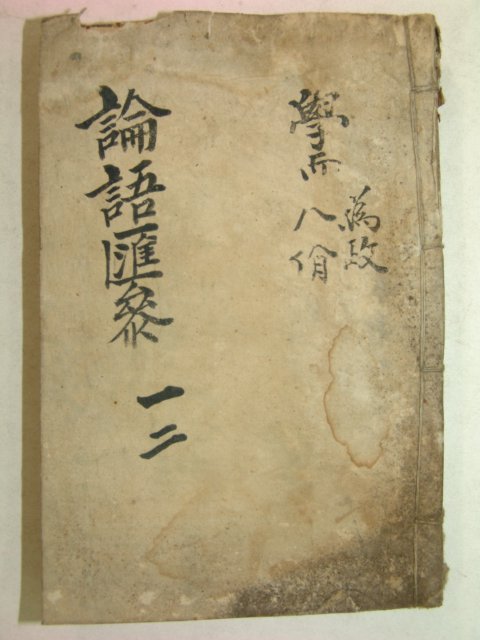 為政
學而 八佾
論語匯參 一二